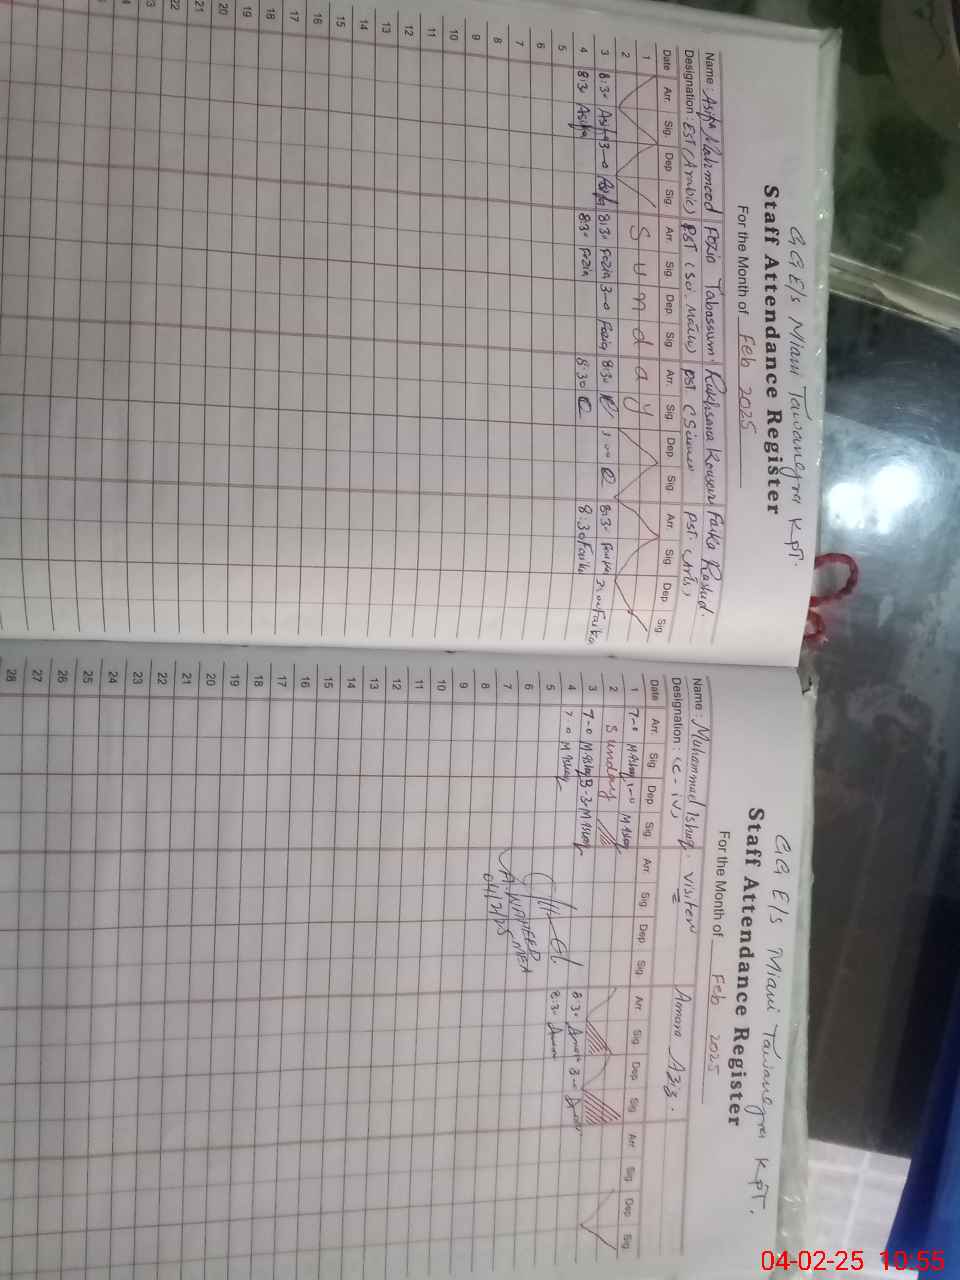 GGE/s Miani Tawanegra KPT.
Staff Attendance Register
For the Month of Feb 2025
Name : Asifa Mahmood Fozia Tabassum Rukhsana Kousar Faika Rashid.
Designation : EST (Arabic) PST (Sci. Math) PST (Science PST (Arts)
Date Arr. Sig. Dep. Sig. Arr. Sig. Dep. Sig. Arr. Sig. Dep. Sig. Arr. Sig. Dep. Sig.
1 Sunday
2
3 8:30 Asifa 3-0 Asifa 8:30 Fozia 3-0 Fozia 8:30 8:30 Faika Faika
4 8:30 Asifa 8:30 Fozia 8:30 8:30 Faika
5
6
7
8
9
10
11
12
13
14
15
16
17
18
19
20
21
22
23
GGE/s Miani Tawanegra KPT.
Staff Attendance Register
For the Month of Feb 2025
Name : Muhammad Ishaq. Visiter Amara Aziz.
Designation : (C-iv)
Date Arr. Sig. Dep. Sig. Arr. Sig. Dep. Sig. Arr. Sig. Dep. Sig. Arr. Sig. Dep. Sig.
1 7-0 M Ishaq 1-00 M Ishaq
2 Sunday
3 7-0 M Ishaq 3-30 M Ishaq
4 7-0 M Ishaq 8:30 3-0
5 8:30
6
7
8
9
10
11
12
13
14
15
16
17
18
19
20
21
22
23
24
25
26
27
28
A. WAHEED
MEA
04/2/25
04-02-25 10:55